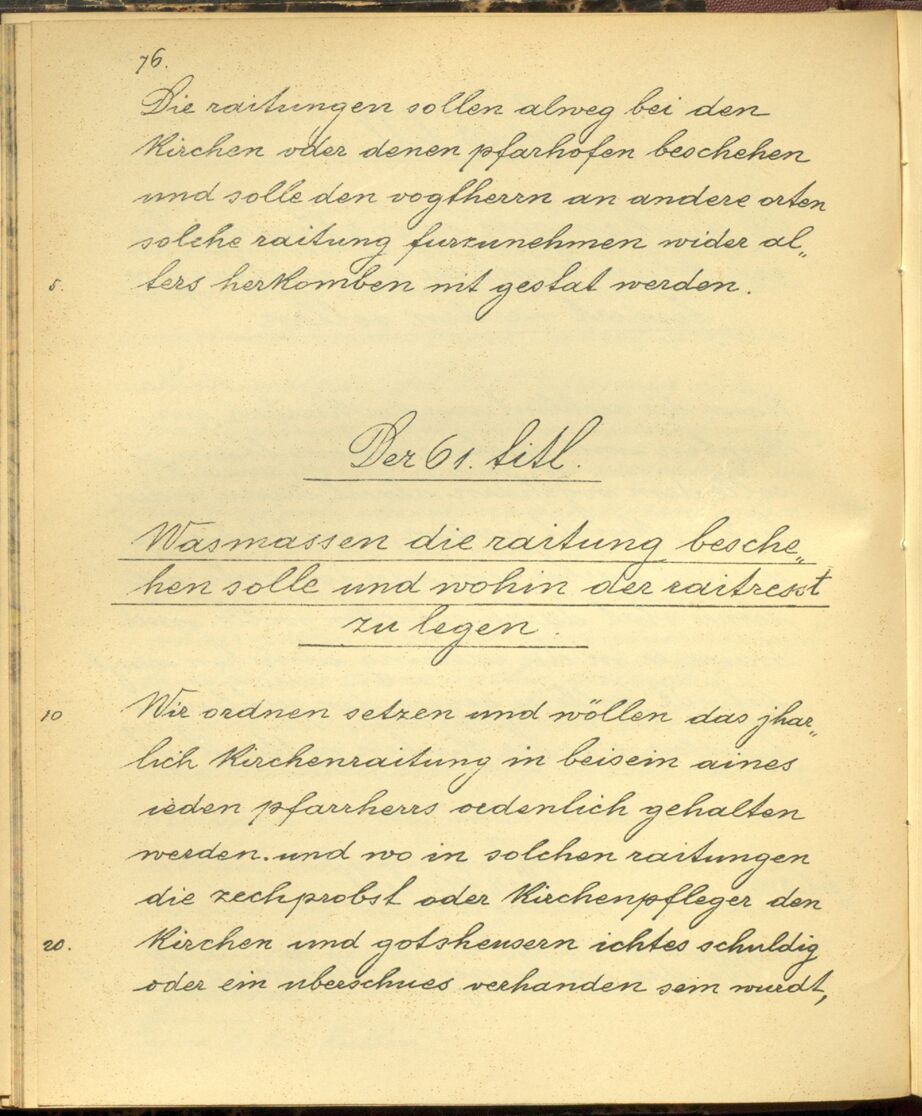 76.
Die raitungen sollen alweg bei den
Kirchen oder denen pfarhofen beschehen
und solle den vogtherrn an andere orten
solche raitung furzunehmen wider al„
5. ters herKomben nit gestat werden.
Der 61. titl.
Wasmassen die raitung besche„
hen solle und wohin der raitresst
zu legen.
10 Wir ordnen setzen und wöllen das jhar„
lich Kirchenraitung in beisein aines
ieden pfarrherrs ordenlich gehalten
werden. und wo in solchen raitungen
die zechprobst oder Kirchenpfleger den
20. Kirchen und gotsheusern ichtes schuldig
oder ein uberschues verhanden sein wurdt,